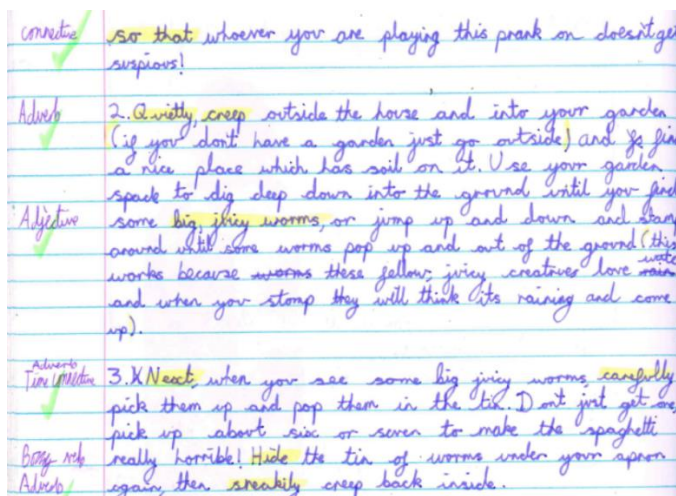 connective so that whoever you are playing this prank on doesn't get
suspious!
Adverb 2. Quietly, creep outside the house and into your garden
(if you don't have a garden just go outside) and fin
a nice place which has soil on it. Use your garden
spack to dig deep down into the ground until you find
Adjective some big, juicy worms, or jump up and down and stamp
around until some worms pop up and out of the ground (this
works because worms these fellow, juicy creatures love rain wate
and when you stomp they will think its raining and come
up).
Adverb
Time connective 3. Next, when you see some big juicy worms, carefully
pick them up and pop them in the tin. Dont just get one,
pick up about six or seven to make the spaghetti
Bossy verb really horrible! Hide the tin of worms under your apron
Adverb again, then sneakily creep back inside.